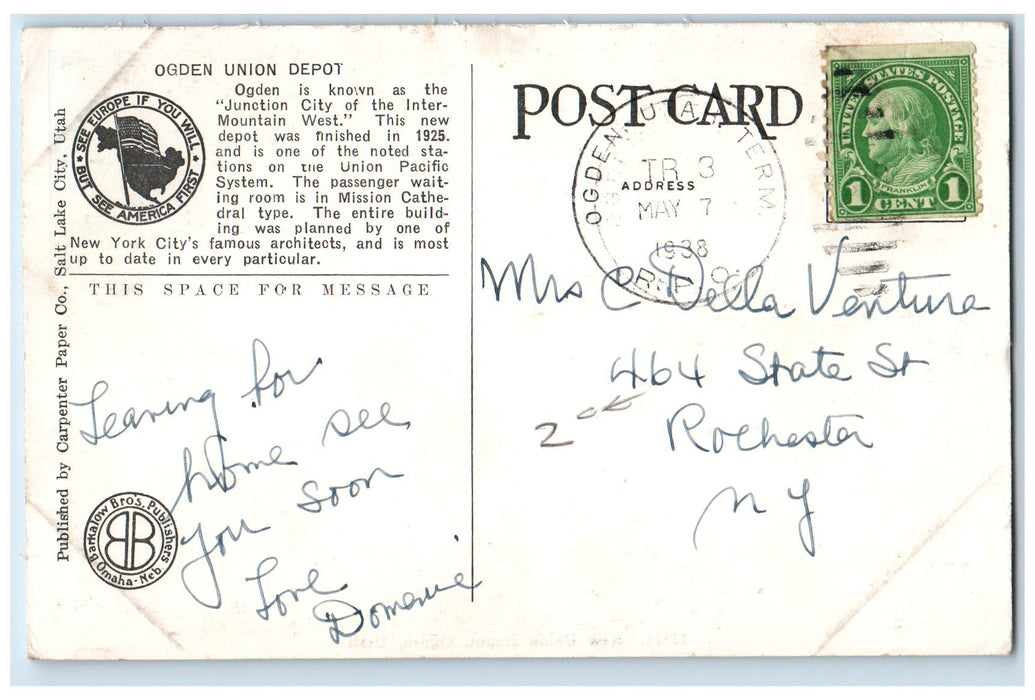 OGDEN UNION DEPOT
Ogden is known as the
"Junction City of the Inter-
Mountain West." This new
depot was finished in 1925.
and is one of the noted sta-
tions on the Union Pacific
System. The passenger wait-
ing room is in Mission Cathe-
dral type. The entire build-
ing was planned by one of
New York City's famous architects, and is most
up to date in every particular.
SEE EUROPE IF YOU WILL
BUT SEE AMERICA FIRST
THIS SPACE FOR MESSAGE
Published by Carpenter Paper Co., Salt Lake City, Utah
Leaving for
home see
you soon
Love
Barkalow Bro's. Publishers
Omaha-Neb.
BB
POST CARD
ADDRESS
OGDEN, UTAH TERM.
TR 3
MAY 7
1938
R.P.O.
UNITED STATES POSTAGE
FRANKLIN
1 CENT 1
Mrs C Della Ventura
464 State St
Rochester
N Y